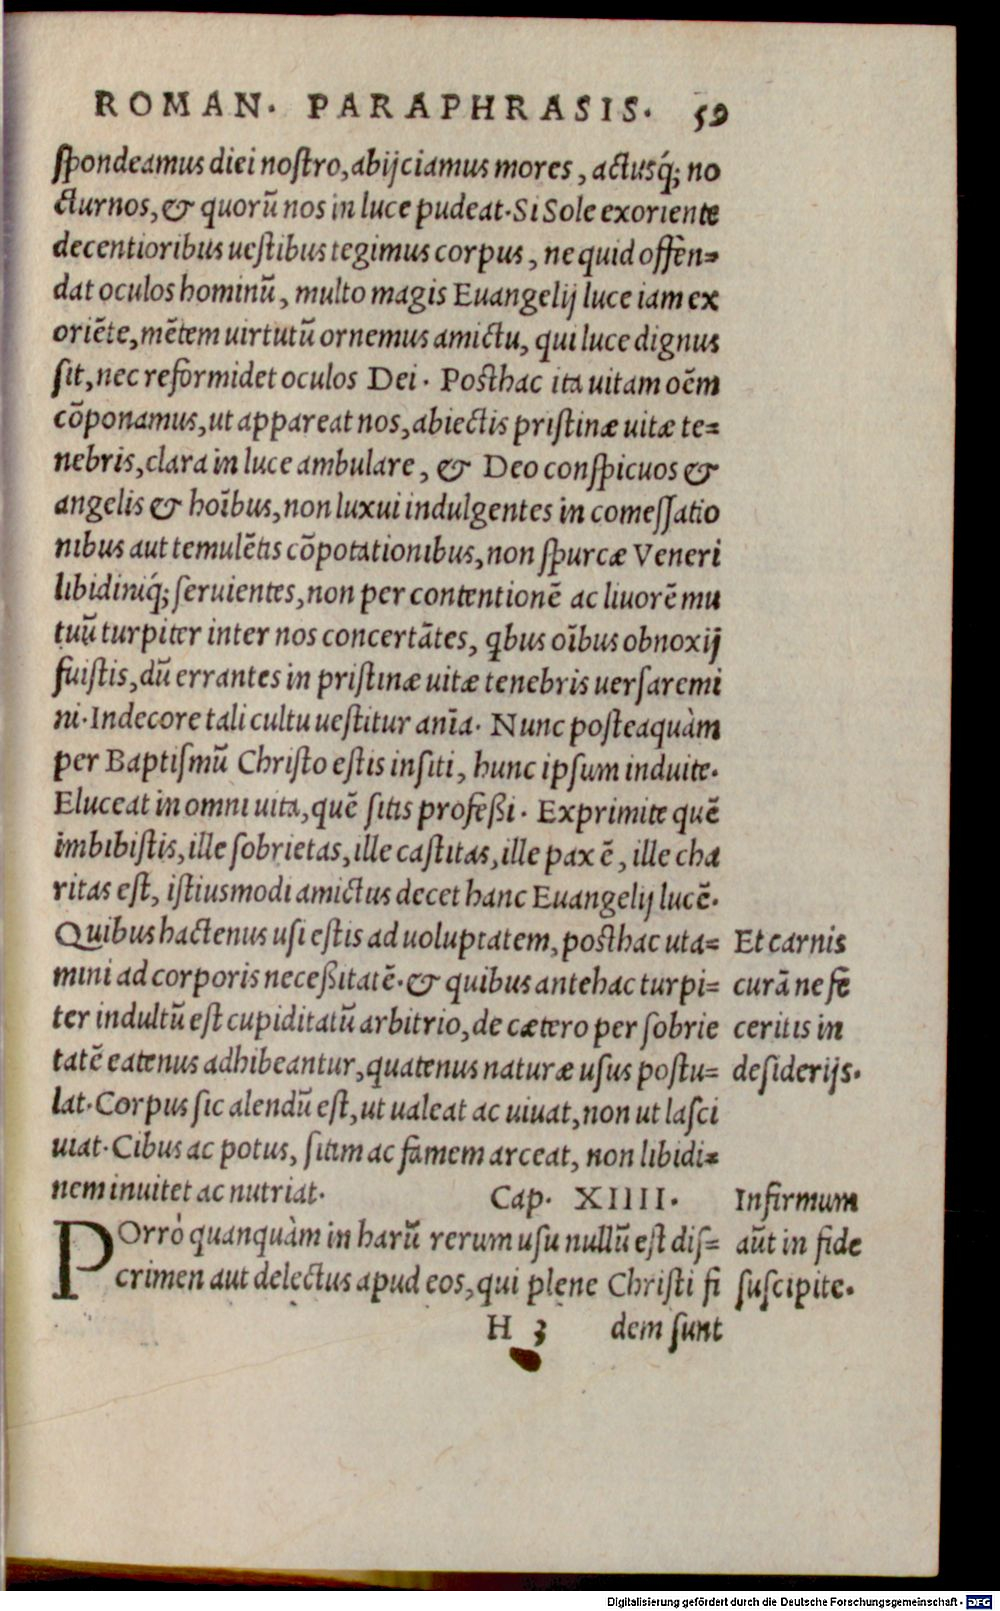 ROMAN. PARAPHRASIS. 59
ſpondeamus diei noſtro, abijciamus mores, actusq́; no
cturnos, & quorũ nos in luce pudeat. Si Sole exoriente
decentioribus ueſtibus tegimus corpus, ne quid offen=
dat oculos hominũ, multo magis Euangelij luce iam ex
oriẽte, mẽtem uirtutũ ornemus amictu, qui luce dignus
ſit, nec reformidet oculos Dei. Poſthac ita uitam oẽm
cõponamus, ut appareat nos, abiectis priſtinæ uitæ te=
nebris, clara in luce ambulare, & Deo conſpicuos &
angelis & hoĩbus, non luxui indulgentes in comeſſatio
nibus aut temulẽtis cõpotationibus, non ſpurcæ Veneri
libidiniq́; ſeruientes, non per contentionẽ ac liuorẽ mu
tuũ turpiter inter nos concertãtes, qbus oĩbus obnoxij
fuiſtis, dũ errantes in priſtinæ uitæ tenebris uerſaremi
ni. Indecore tali cultu ueſtitur anĩa. Nunc poſteaquàm
per Baptiſmũ Chriſto eſtis inſiti, hunc ipſum induite.
Eluceat in omni uita, quẽ ſitis profeßi. Exprimite quẽ
imbibiſtis, ille ſobrietas, ille caſtitas, ille pax ẽ, ille cha
ritas eſt, iſtiusmodi amictus decet hanc Euangelij lucẽ.
Quibus hactenus uſi eſtis ad uoluptatem, poſthac uta=
mini ad corporis neceßitatẽ. & quibus antehac turpi=
ter indultũ eſt cupiditatũ arbitrio, de cætero per ſobrie
tatẽ eatenus adhibeantur, quatenus naturæ uſus poſtu=
lat. Corpus ſic alendũ eſt, ut ualeat ac uiuat, non ut laſci
uiat. Cibus ac potus, ſitim ac famem arceat, non libidi=
nem inuitet ac nutriat. Cap. XIIII.
Et carnis
curã ne fe
ceritis in
deſiderijs.
POrrò quanquàm in harũ rerum uſu nullũ eſt diſ=
crimen aut delectus apud eos, qui plene Chriſti fi
Infirmum
aũt in fide
ſuſcipite.
H 3 dem ſunt
Digitalisierung gefördert durch die Deutsche Forschungsgemeinschaft - DFG